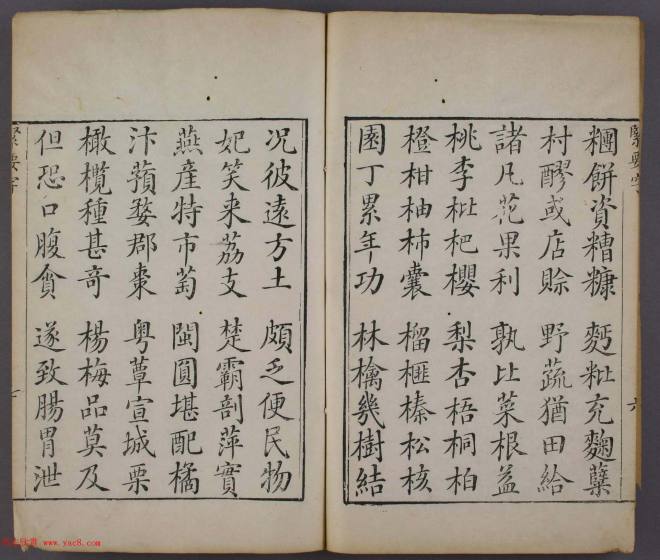 糰餅資糟糠　麫粃充麴糵
村醪或店賒　野蔬猶田給
諸凡花果利　孰比菜根益
桃李枇杷櫻　梨杏梧桐柏
橙柑柚柿囊　榴榧榛松核
園丁累年功　林檎幾樹結
六
況彼遠方土　頗乏便民物
妃笑来荔支　楚霸剖萍實
燕產特市萄　閩圓堪配橘
汴蘋婺郡棗　粵蕈宣城栗
橄欖種甚奇　楊梅品莫及
但恐口腹貪　遂致腸胃泄
緊要字